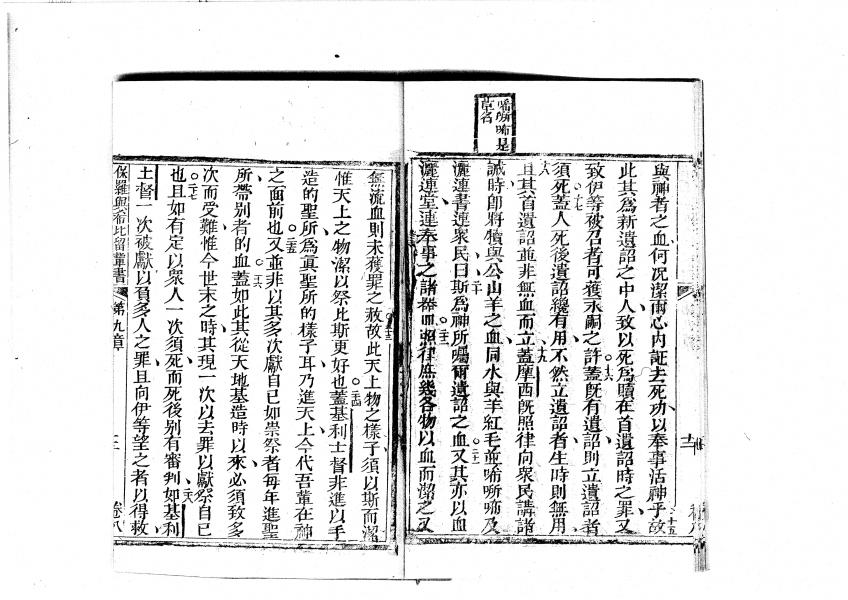 嘶哂咘是
草名
與神者之血何况潔爾心内証去死功以奉事活神乎故
此其爲新遺詔之中人致以死爲贖在首遺詔時之罪又
致伊等被召者可獲永嗣之許蓋旣有遺詔則立遺詔者
須死蓋人死後遺詔纔有用不然立遺詔者生時則無用
且其首遺詔並非無血而立蓋摩西旣照律向衆民講諸
誡時卽將犢與公山羊之血同水與羊紅毛並
灑連書連衆民曰斯爲神所囑爾遺詔之血又其亦以血
灑連堂連奉事之諸器皿照律庶幾各物以血而潔之又
無流血則未獲罪之赦故此天上物之樣子須以斯而潔
惟天上之物潔以祭比斯更好也蓋基利士督非進以手
造的聖所爲眞聖所的樣子耳乃進天上今代吾輩在神
之面前也又並非以其多次獻自己如崇祭者每年進聖
所帶別者的血蓋如此其從天地基造時以來必須致多
次而受難惟今世末之時其現一次以去罪以獻祭自己
也且如有定以衆人一次須死而死後別有審判如基利
士督一次被獻以負多人之罪且向伊等望之者以得救
保羅與希比留輩書 第九章 卷八